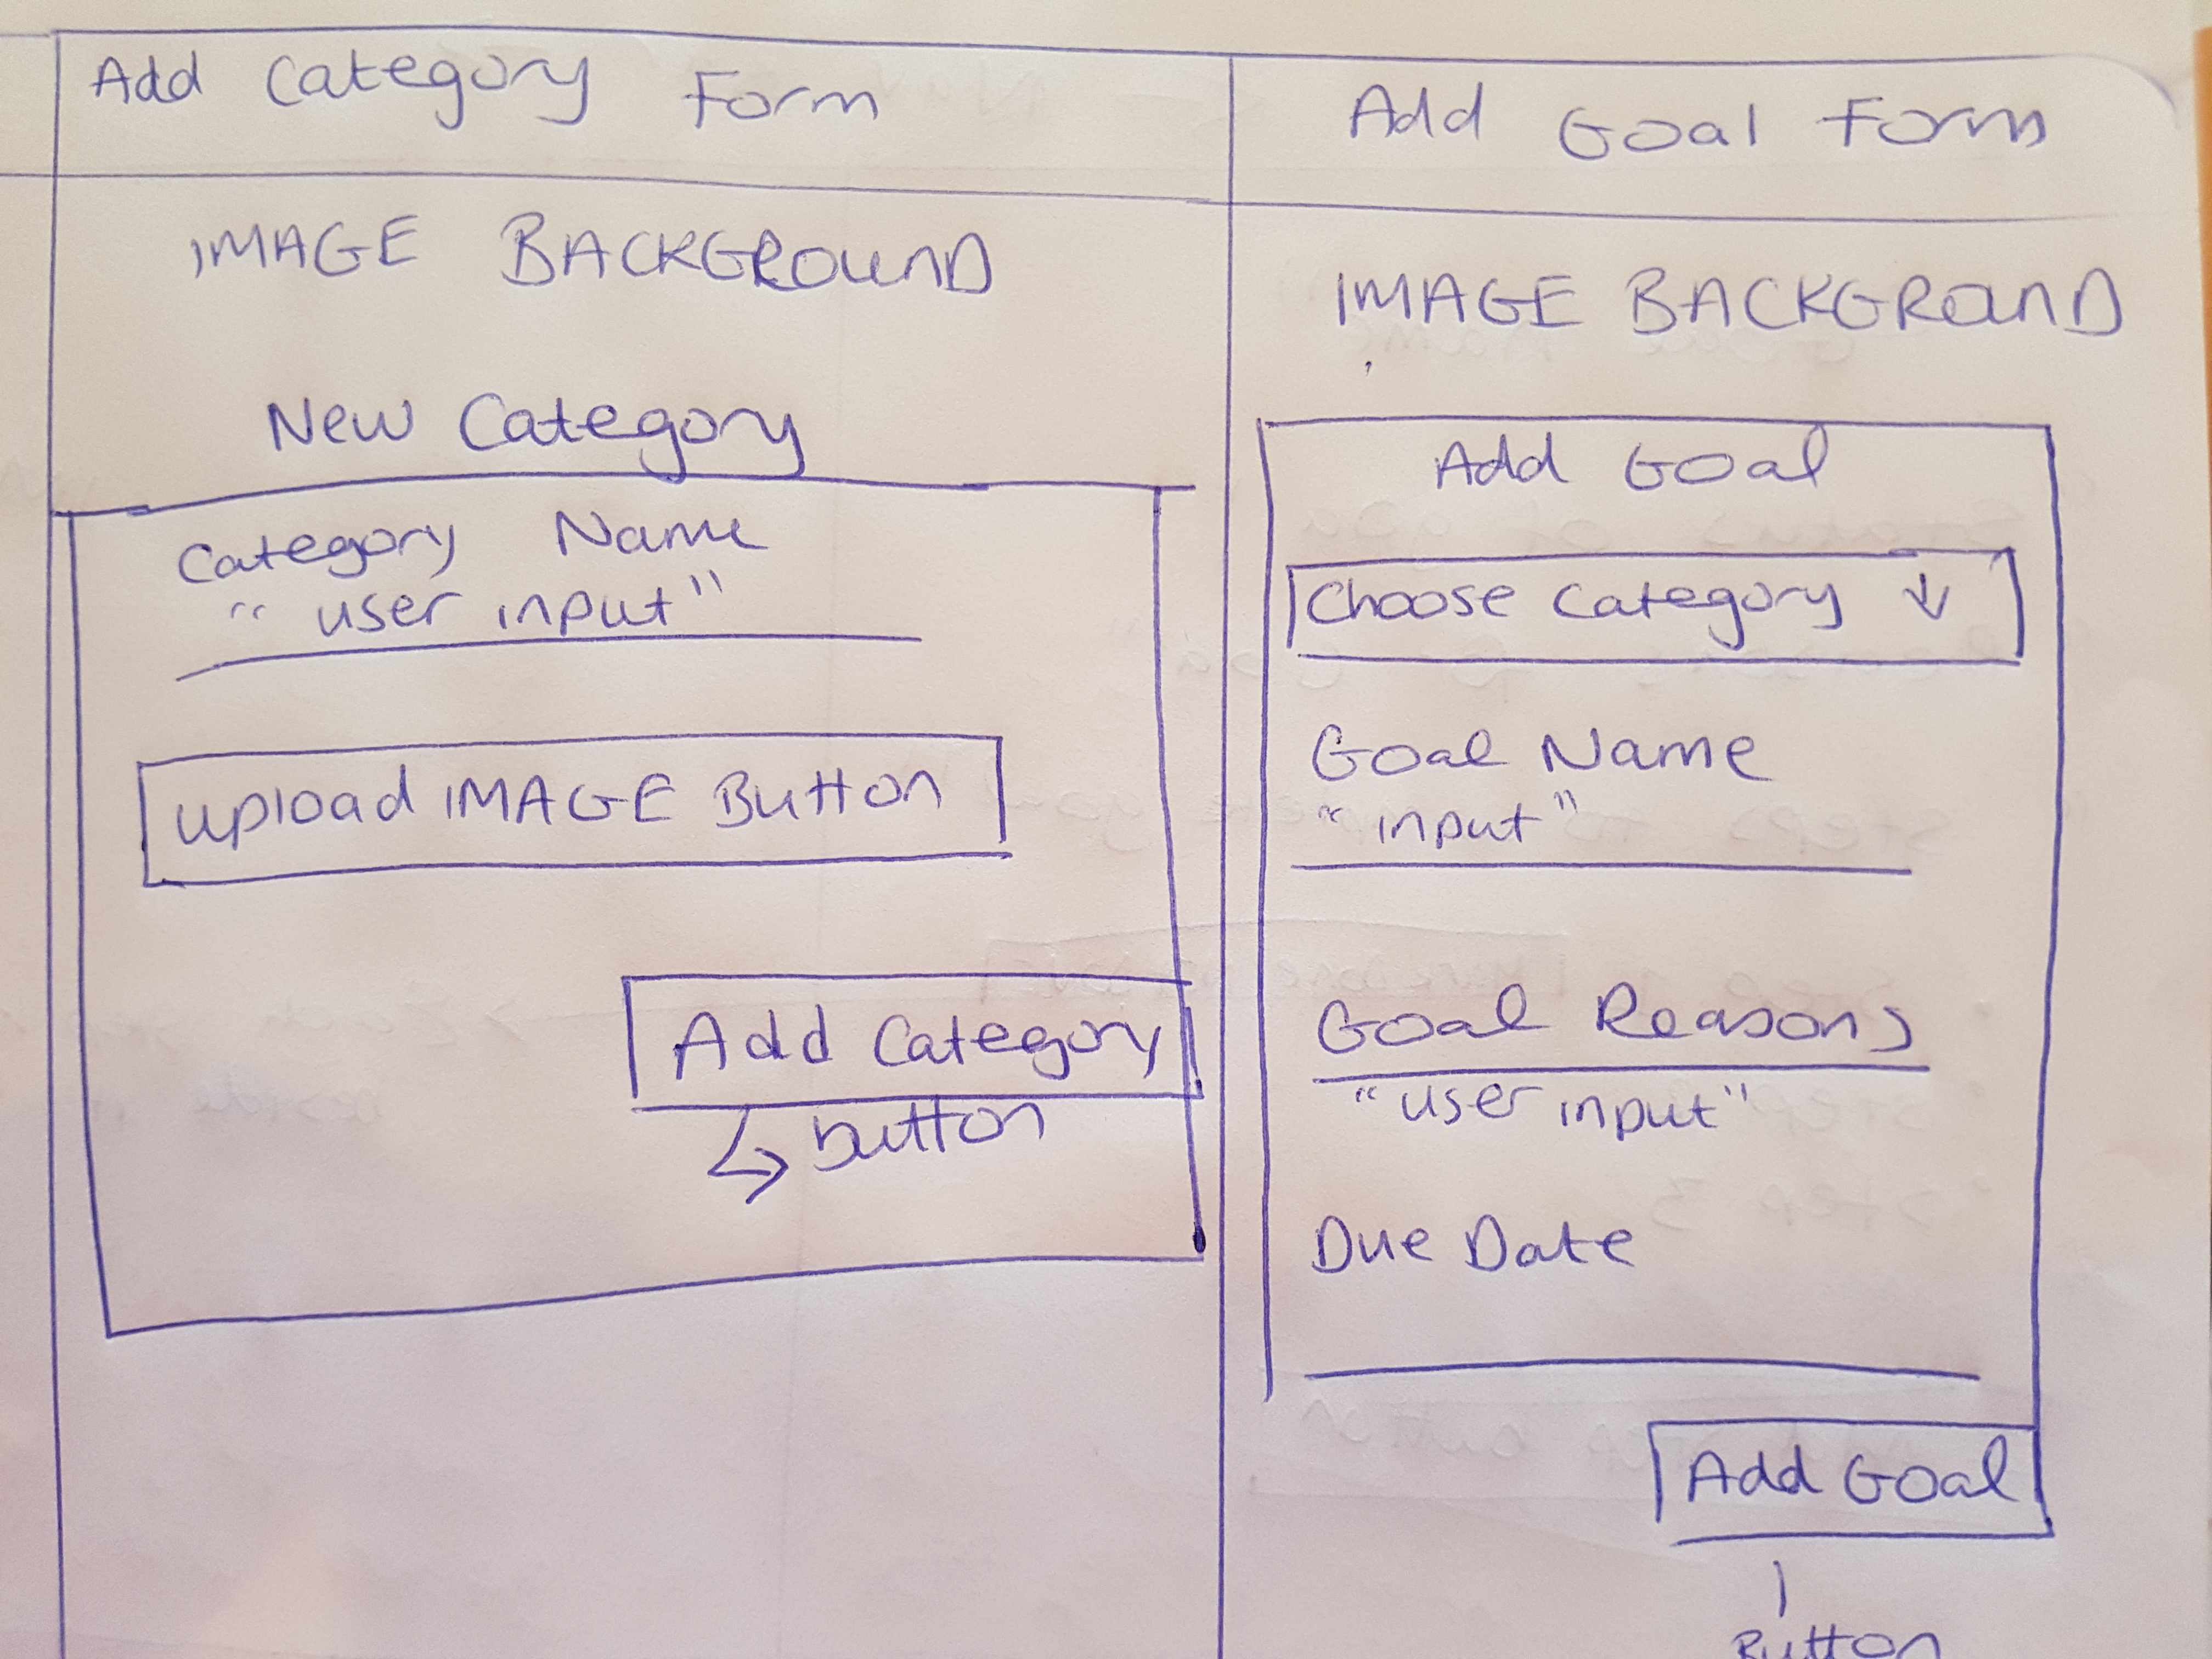 Add Category Form
IMAGE BACKGROUND
New Category
Category Name
"user input"
Upload IMAGE Button
Add Category
button
Add Goal Form
IMAGE BACKGROUND
Add Goal
Choose Category
Goal Name
"input"
Goal Reason
"user input"
Due Date
Add Goal
Button